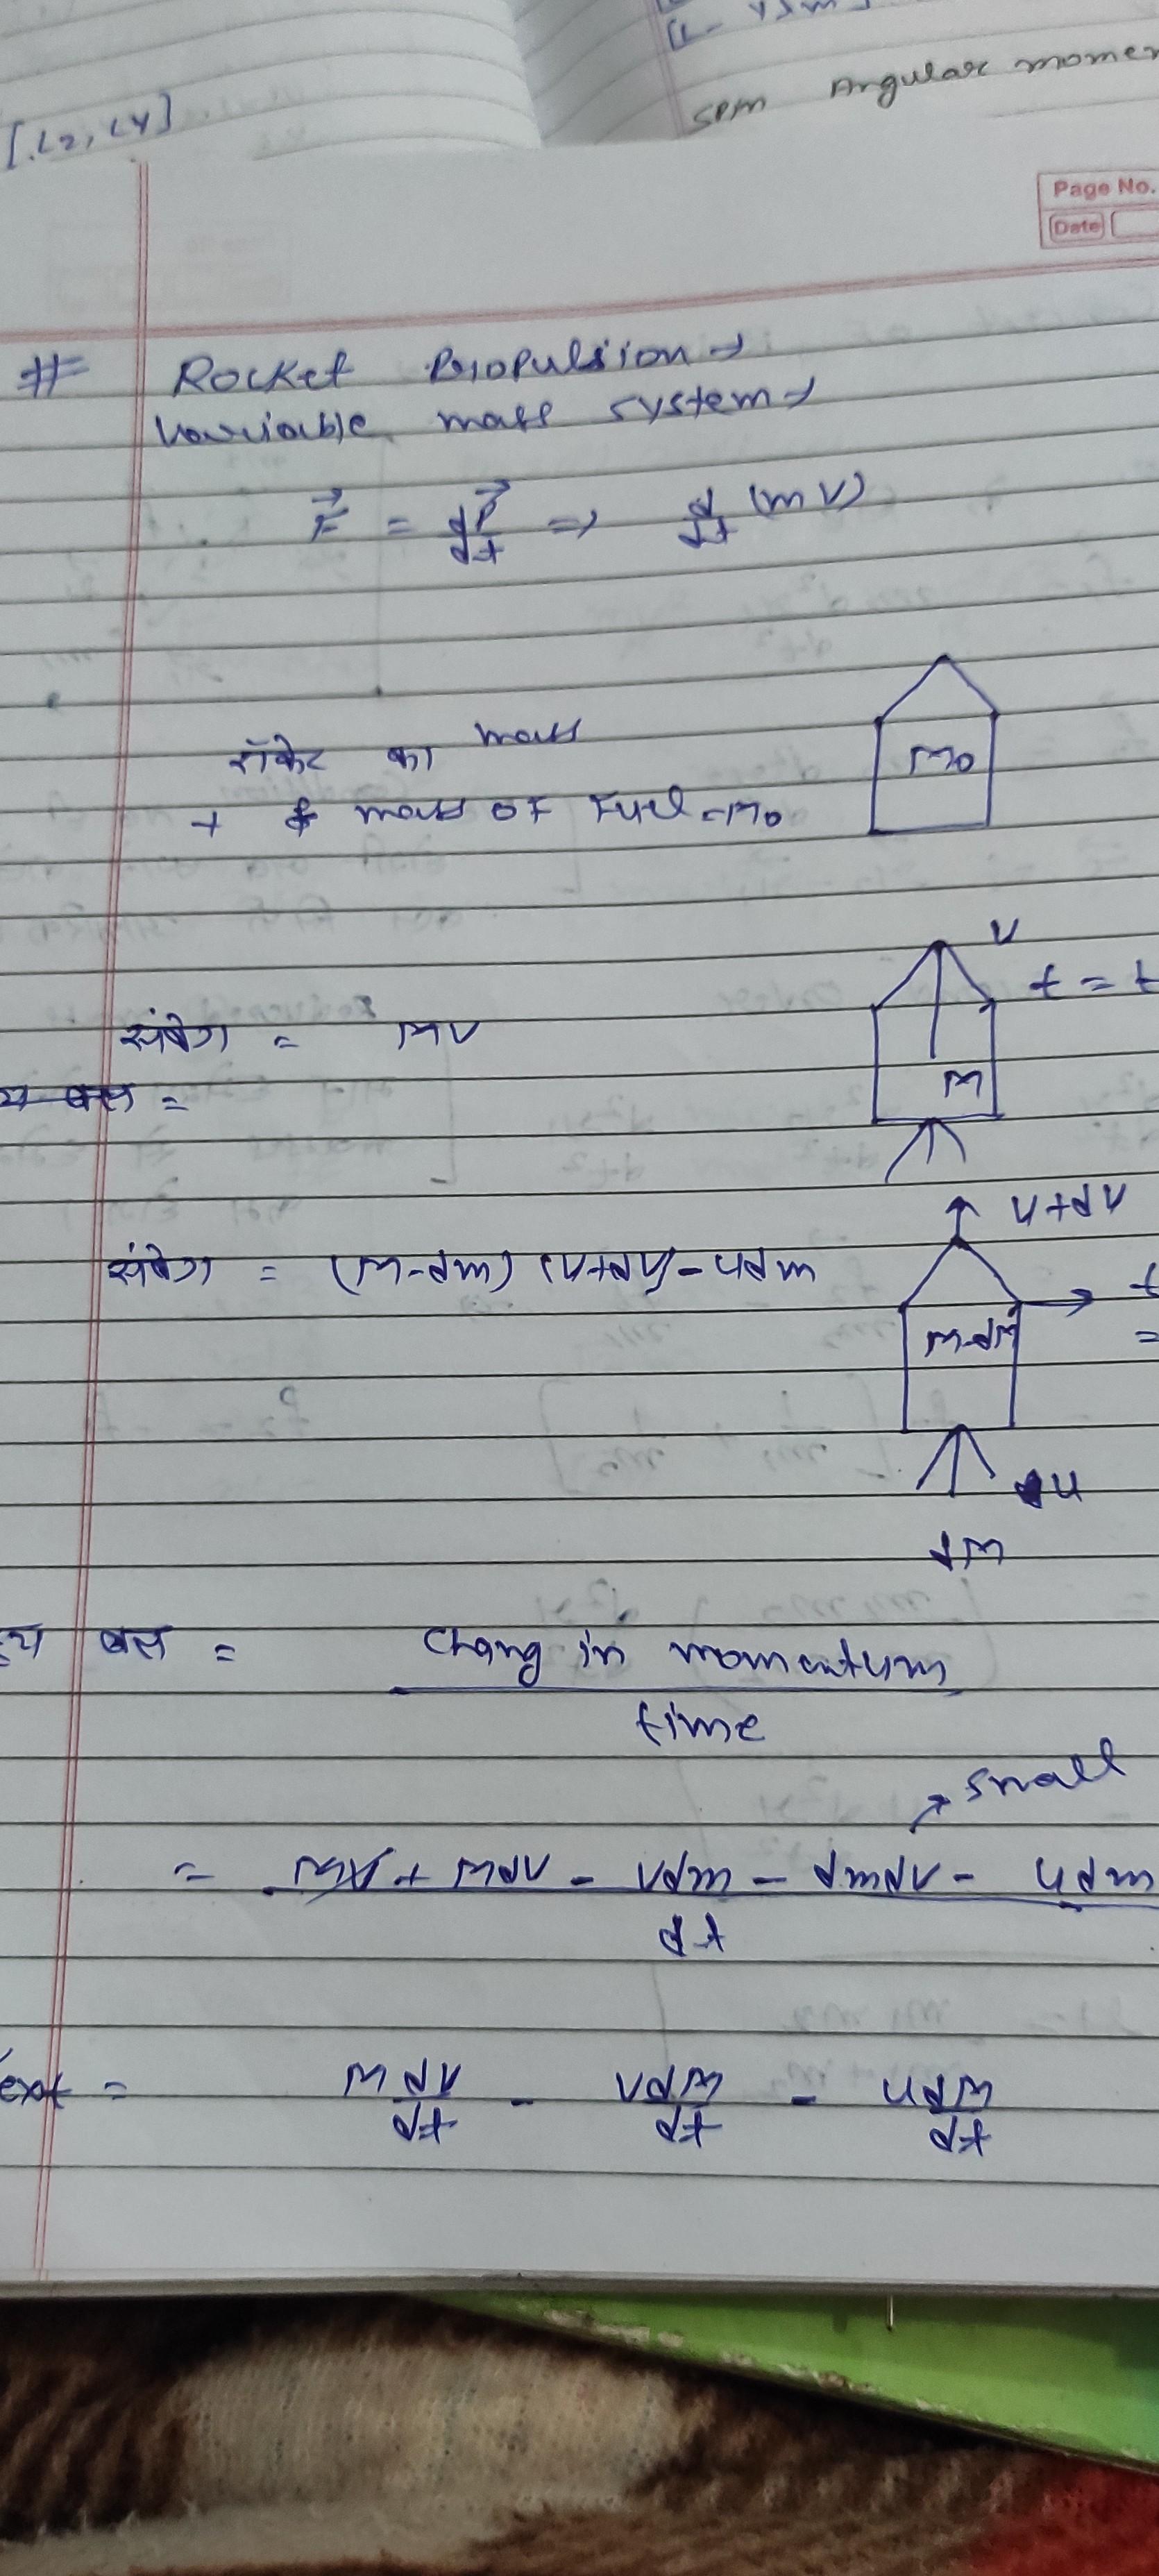 [L2, LY]
SPM Angular momen
Page No.
Date
# Rocket Propulsion →
variable mass system →
F⃗ = dP⃗/dt ⇒ d/dt (mv)
रॉकेट का mass
+ mass of Fuel = M0
M0
v
t = t
संवेग = MV
M
बल =
v+dv
संवेग = (M-dm) (v+dv) - udm
M-dM
u
dM
बल = Chang in momentum / time
small
= MV + Mdv - vdm - dmdv - udm / dt
ext = M dv/dt - vdM/dt - udM/dt